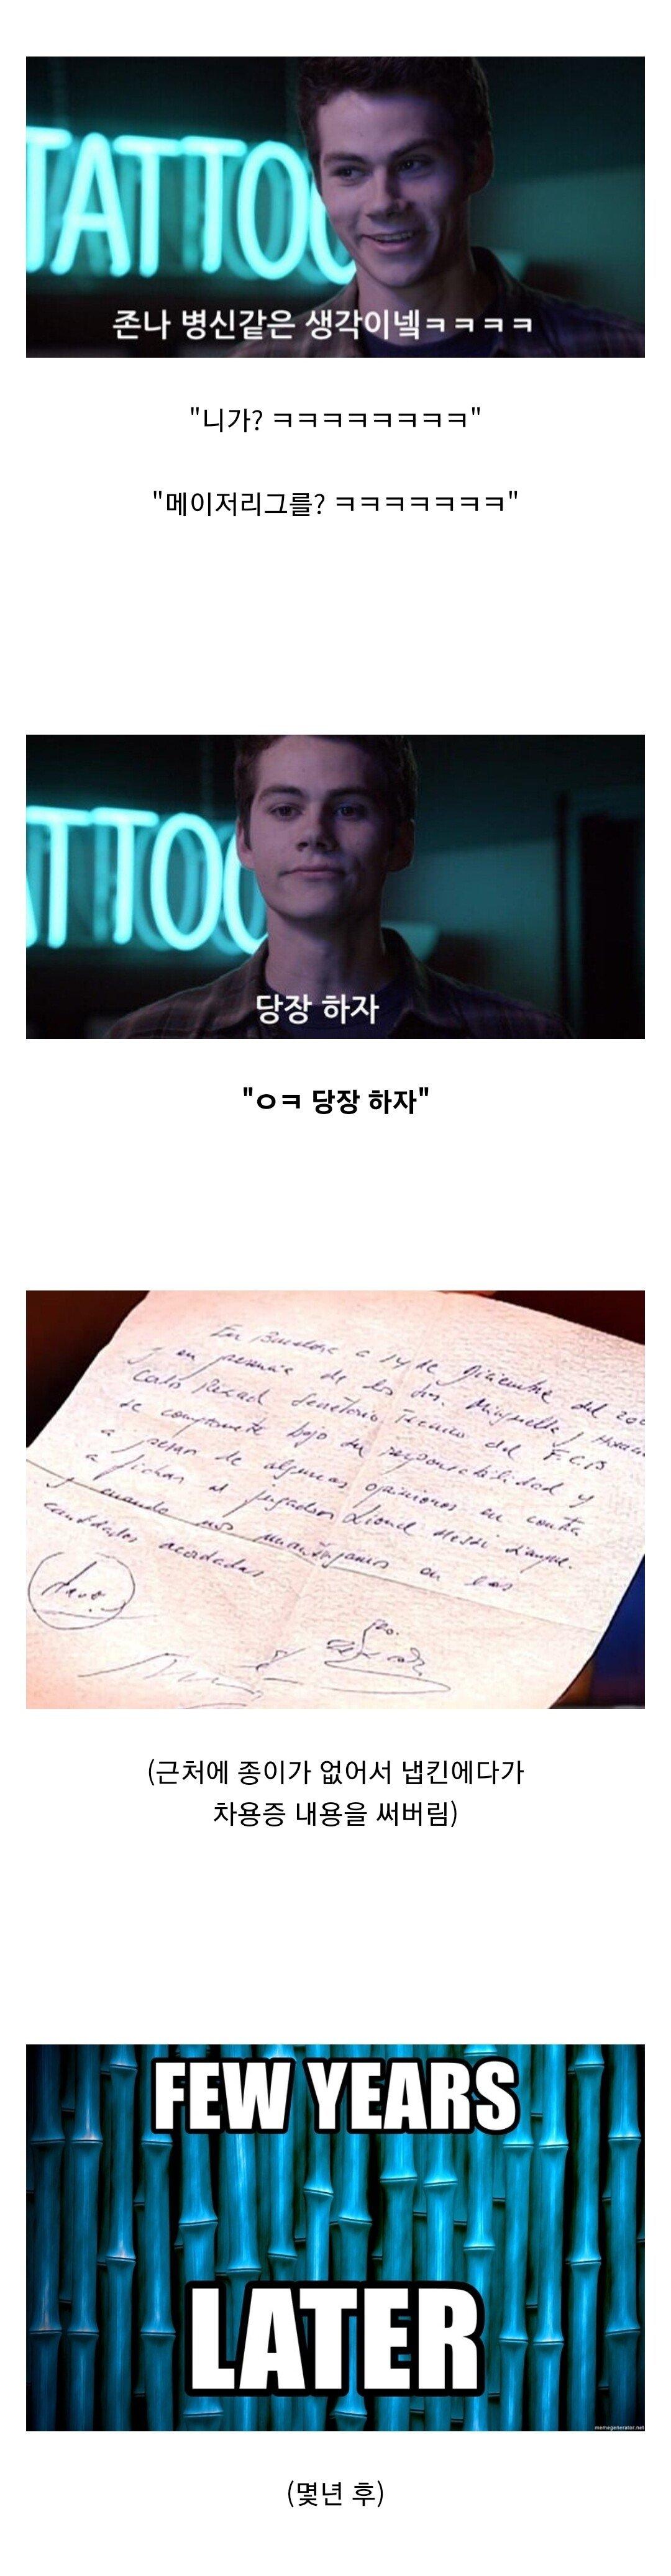 TATTOO
존나 병신같은 생각이넼ㅋㅋㅋㅋ
"니가? ㅋㅋㅋㅋㅋㅋㅋㅋ"
"메이저리그를? ㅋㅋㅋㅋㅋㅋㅋ"
TTOO
당장 하자
"ㅇㅋ 당장 하자"
a 14 de diciembre del
en presencia de los Srs. Minguella y
Carlos Rexach Secretario Técnico del F.C.B
se compromete bajo su responsabilidad y
a pesar de algunas opiniones en contra
a fichar al jugador Lionel Messi
y cuando nos mantengamos en las
cantidades acordadas
(근처에 종이가 없어서 냅킨에다가
차용증 내용을 써버림)
FEW YEARS
LATER
memegenerator.net
(몇년 후)